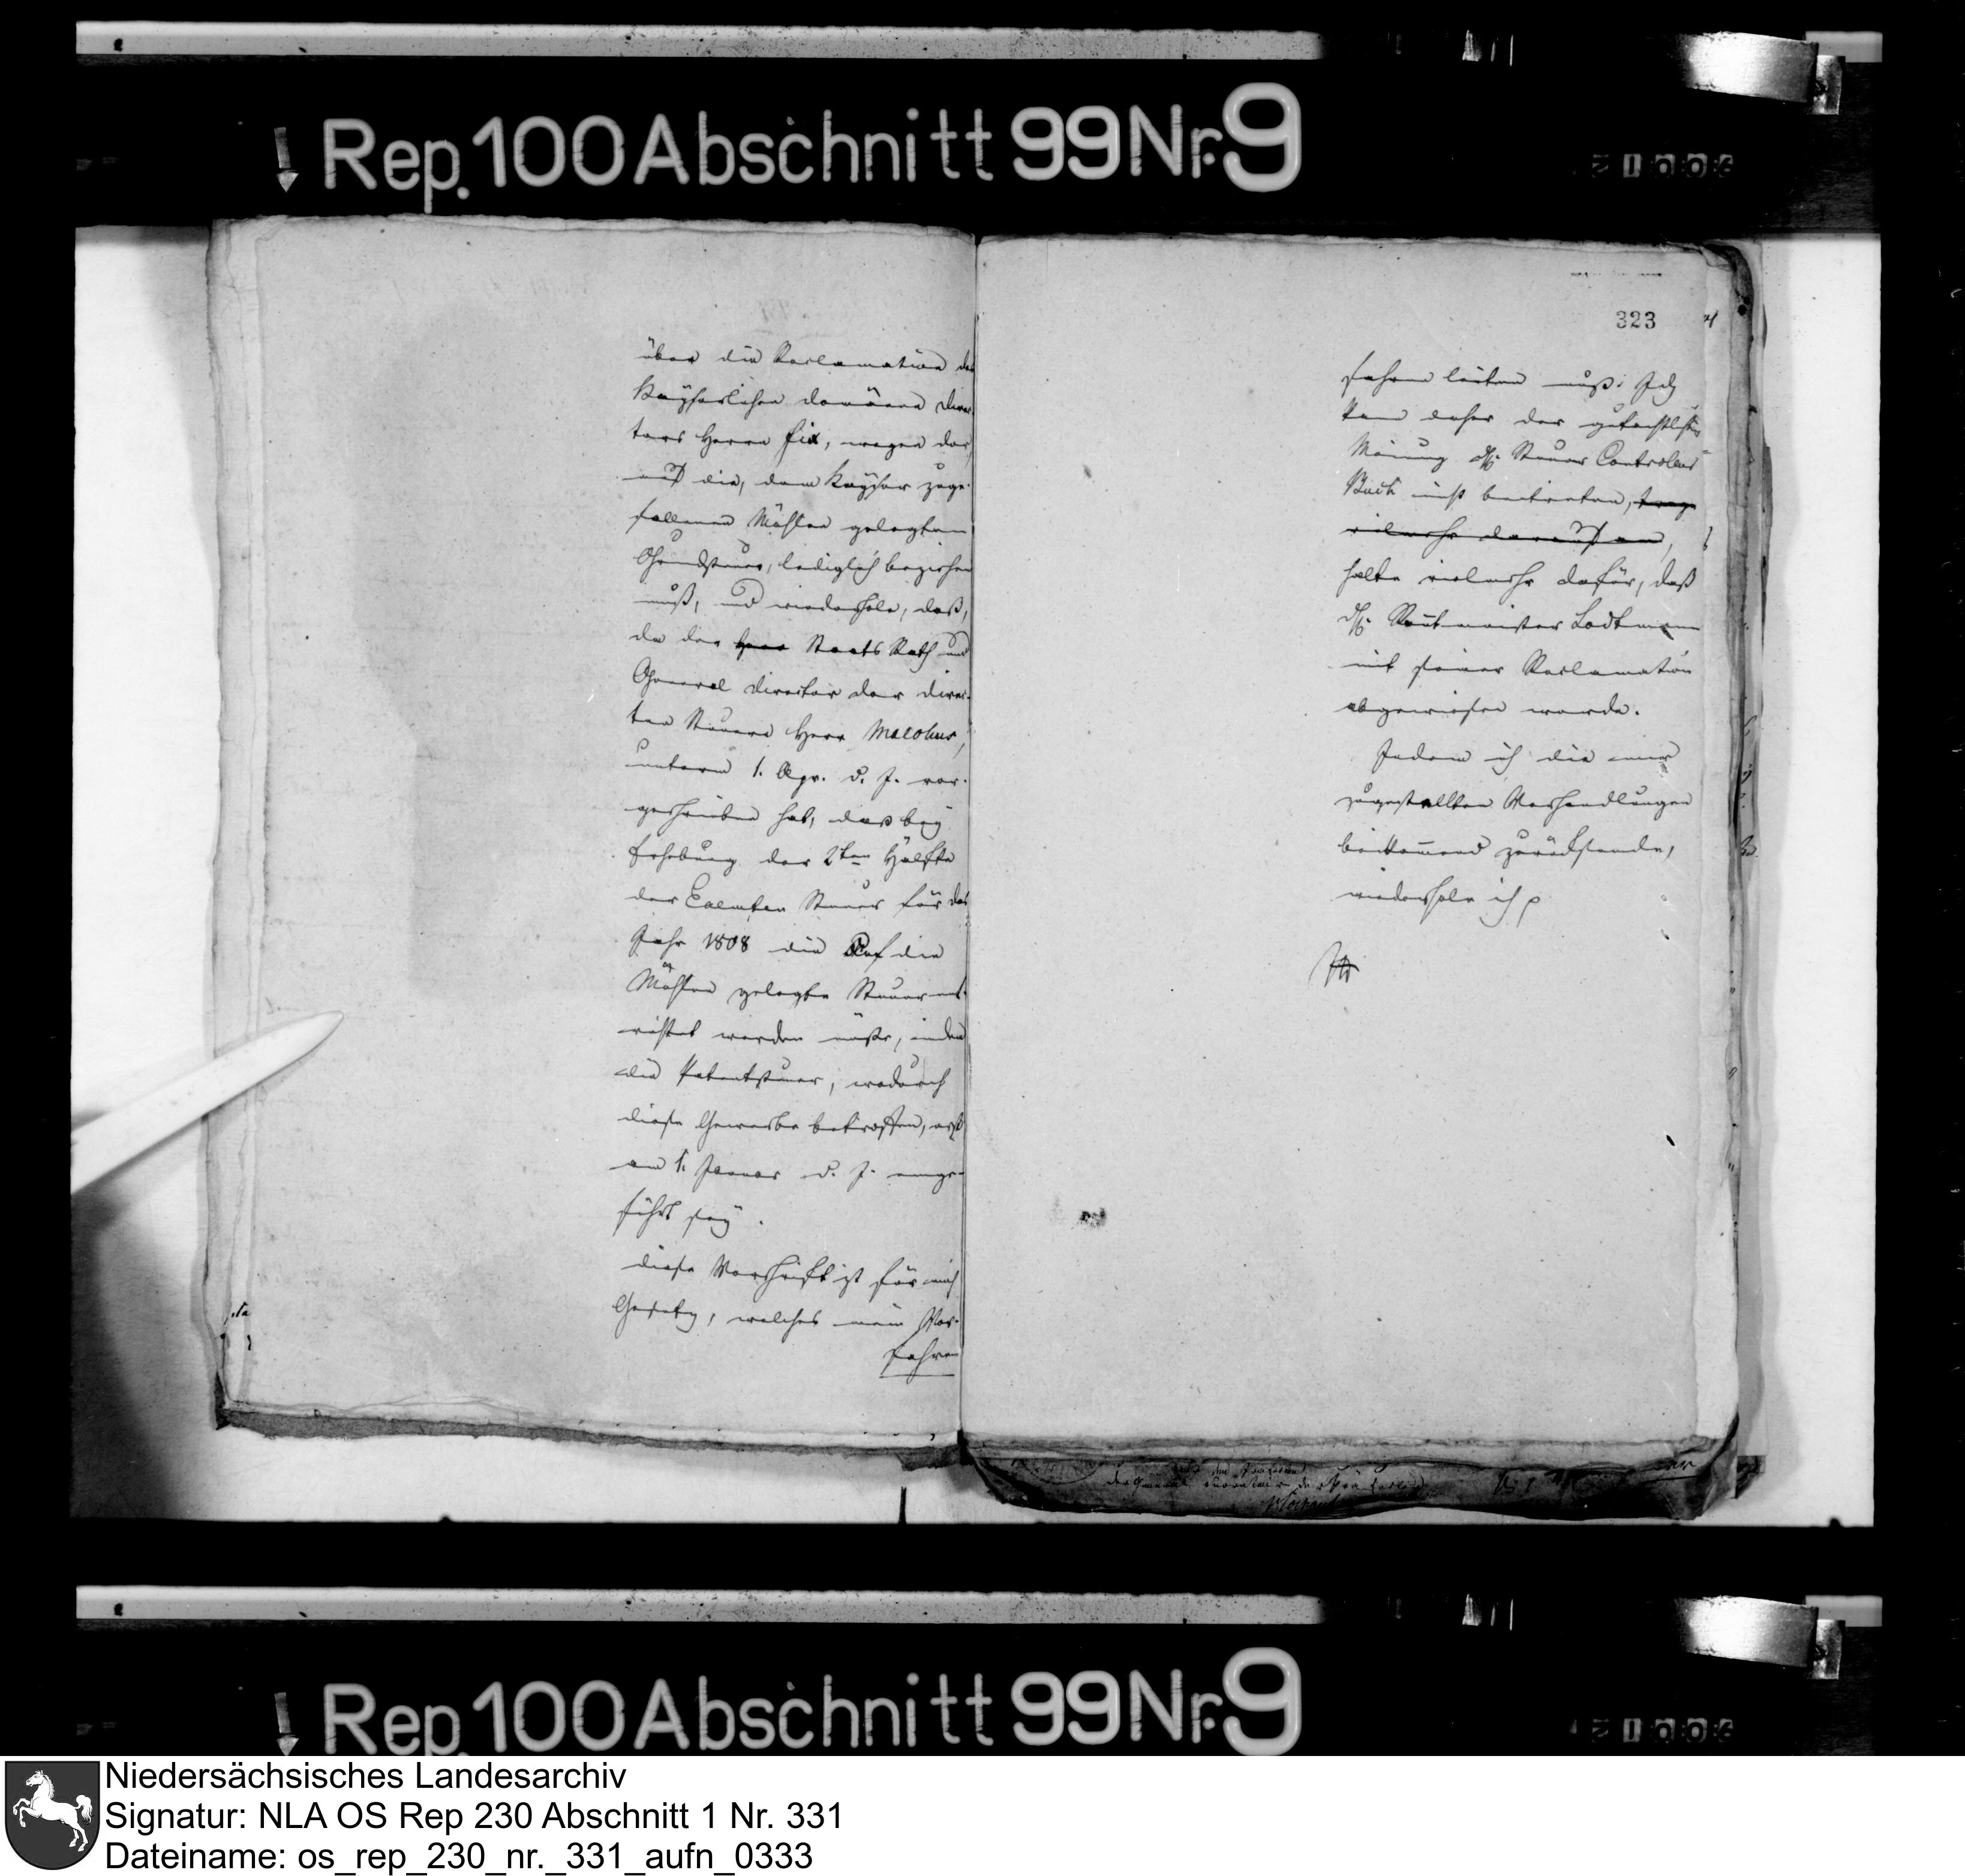 Rep. 100 Abschnitt 99 Nr. 9
über die Reclamation des
Kayserlichen Domänen Direc-
tors Herrn Fix, wegen der,
auf die, dem Kayser zuge-
fallenen Mühlen gelegten
Grundsteuer, lediglich beziehen
muß, und wiederhole, daß,
da der Herr Staats Rath und
General Director der direc-
ten Steuern Herr Malchus,
unterm 1. Apr. d. J. vor-
geschrieben hat, daß bey
Erhebung der 2ten Hälfte
der Exemten Steuer für das
Jahr 1808 die auf die
Mühlen gelegte Steuer ent-
richtet werden müßte, indem
die Patentsteuer, wodurch
diese Gewerbe betroffen, erst
am 1. Januar d. J. einge-
führt sey.
Diese Vorschrift ist für mich
Gesetz, welches mein Ver-
fahren
323
fahren leiten muß. Ich
kann daher der gutachtlichen
Meinung des Steuer Controleurs
Back nicht beitreten, trage
vielmehr darauf an,
halte vielmehr dafür, daß
der Rentmeister Lodtmann
mit seiner Reclamation
abgewiesen werde.
Indem ich die mir
zugestellten Verhandlungen
beikommend zurücksende,
wiederhole ich p
Rep. 100 Abschnitt 99 Nr. 9
Niedersächsisches Landesarchiv
Signatur: NLA OS Rep 230 Abschnitt 1 Nr. 331
Dateiname: os_rep_230_nr._331_aufn_0333